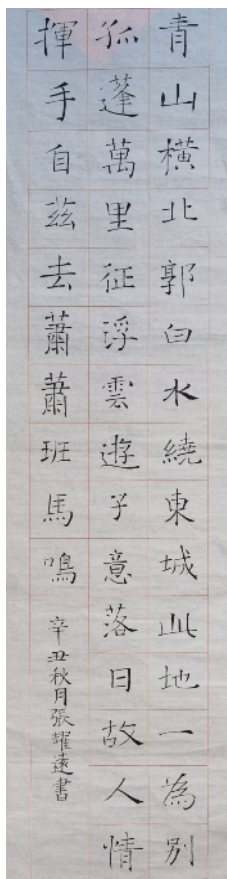 青山橫北郭白水繞東城此地一為別
孤蓬萬里征浮雲遊子意落日故人情
揮手自茲去蕭蕭班馬鳴
辛丑秋月張耀遠書